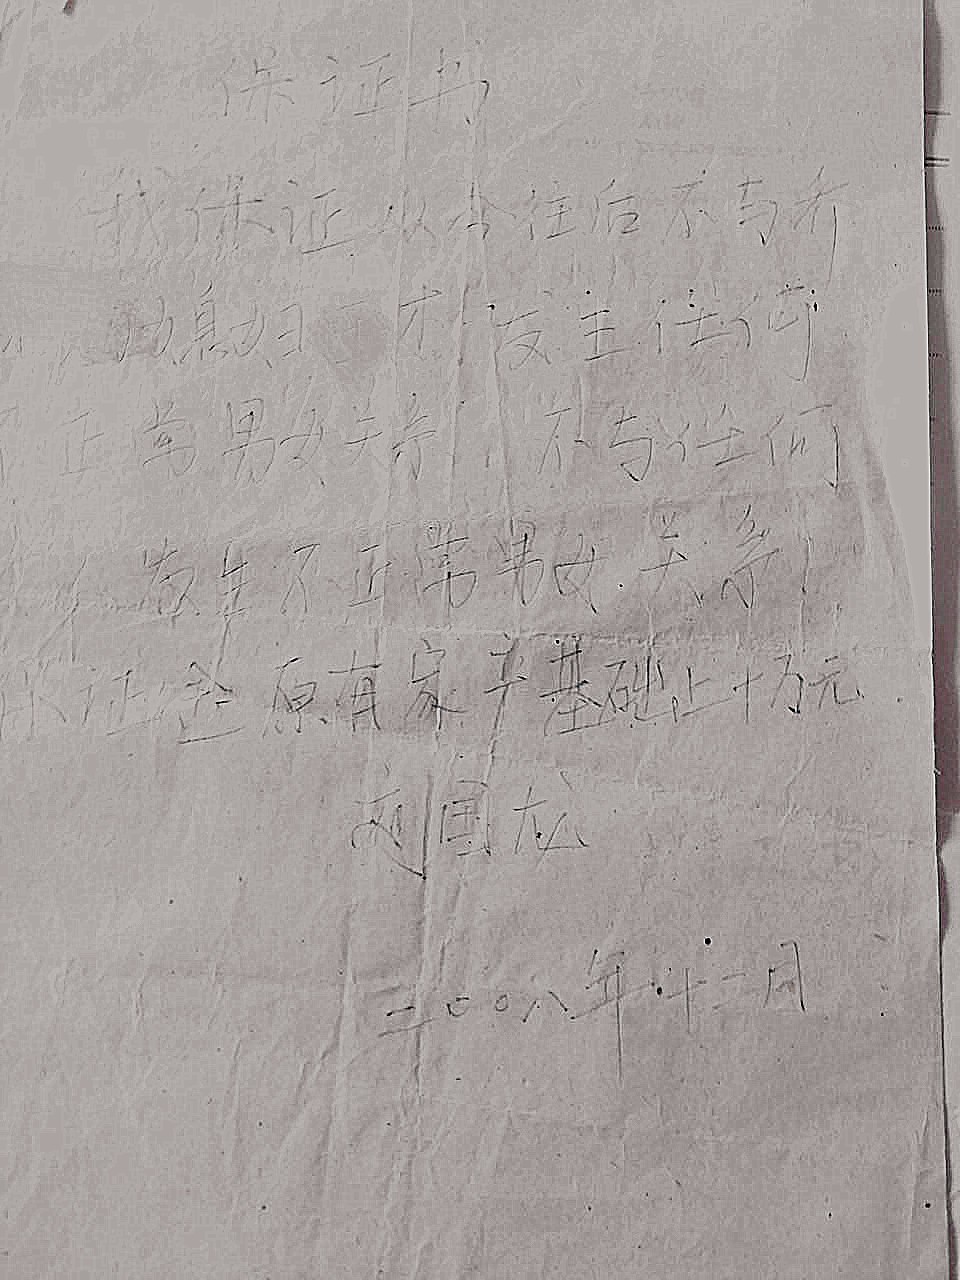 保证书
我保证从今往后不与乔
媳妇 发生任何
正常男女关系，不与任何
人发生不正常男女关系！
保证金原有家产基础上十万元.
国龙
二〇〇八年十二月